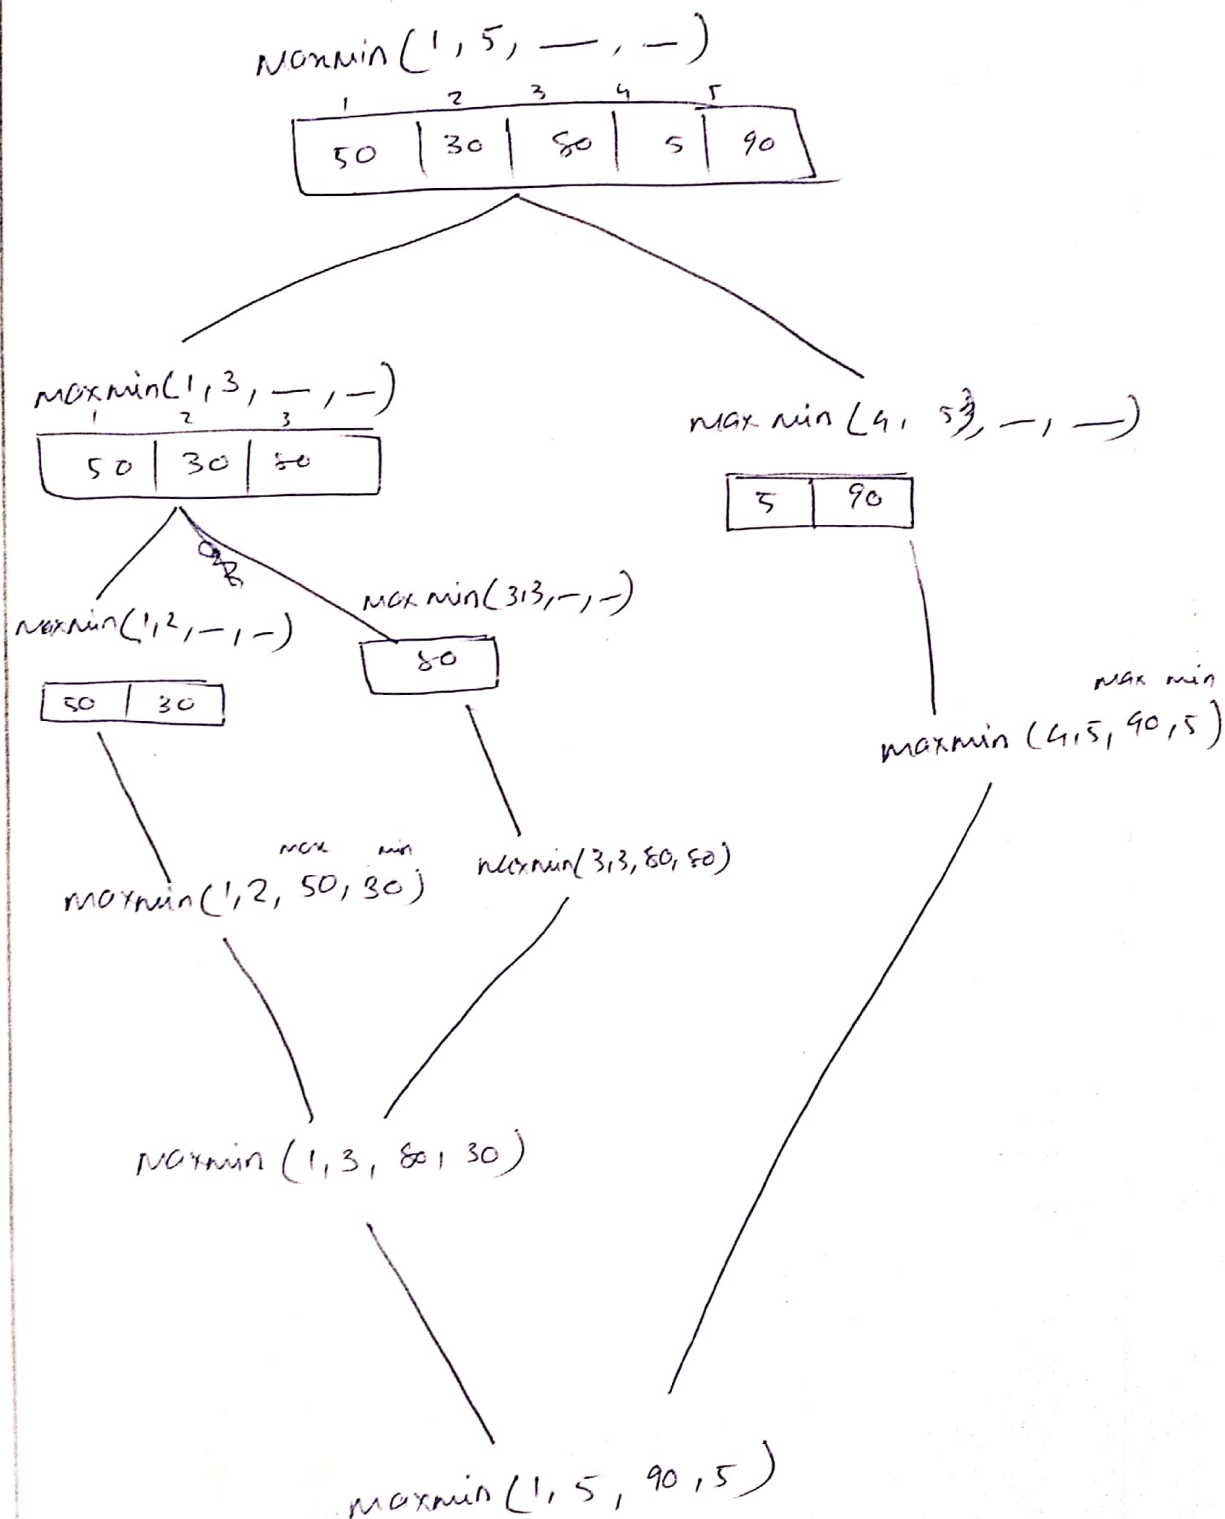 maxmin(1, 5, —, —)
1 2 3 4 5
50 30 80 5 90
maxmin(1, 3, —, —)
1 2 3
50 30 80
maxmin(4, 5, —, —)
5 90
maxmin(1, 2, —, —)
50 30
maxmin(3, 3, —, —)
80
max min
maxmin(4, 5, 90, 5)
max min
maxmin(1, 2, 50, 30)
maxmin(3, 3, 80, 80)
maxmin(1, 3, 80, 30)
maxmin(1, 5, 90, 5)